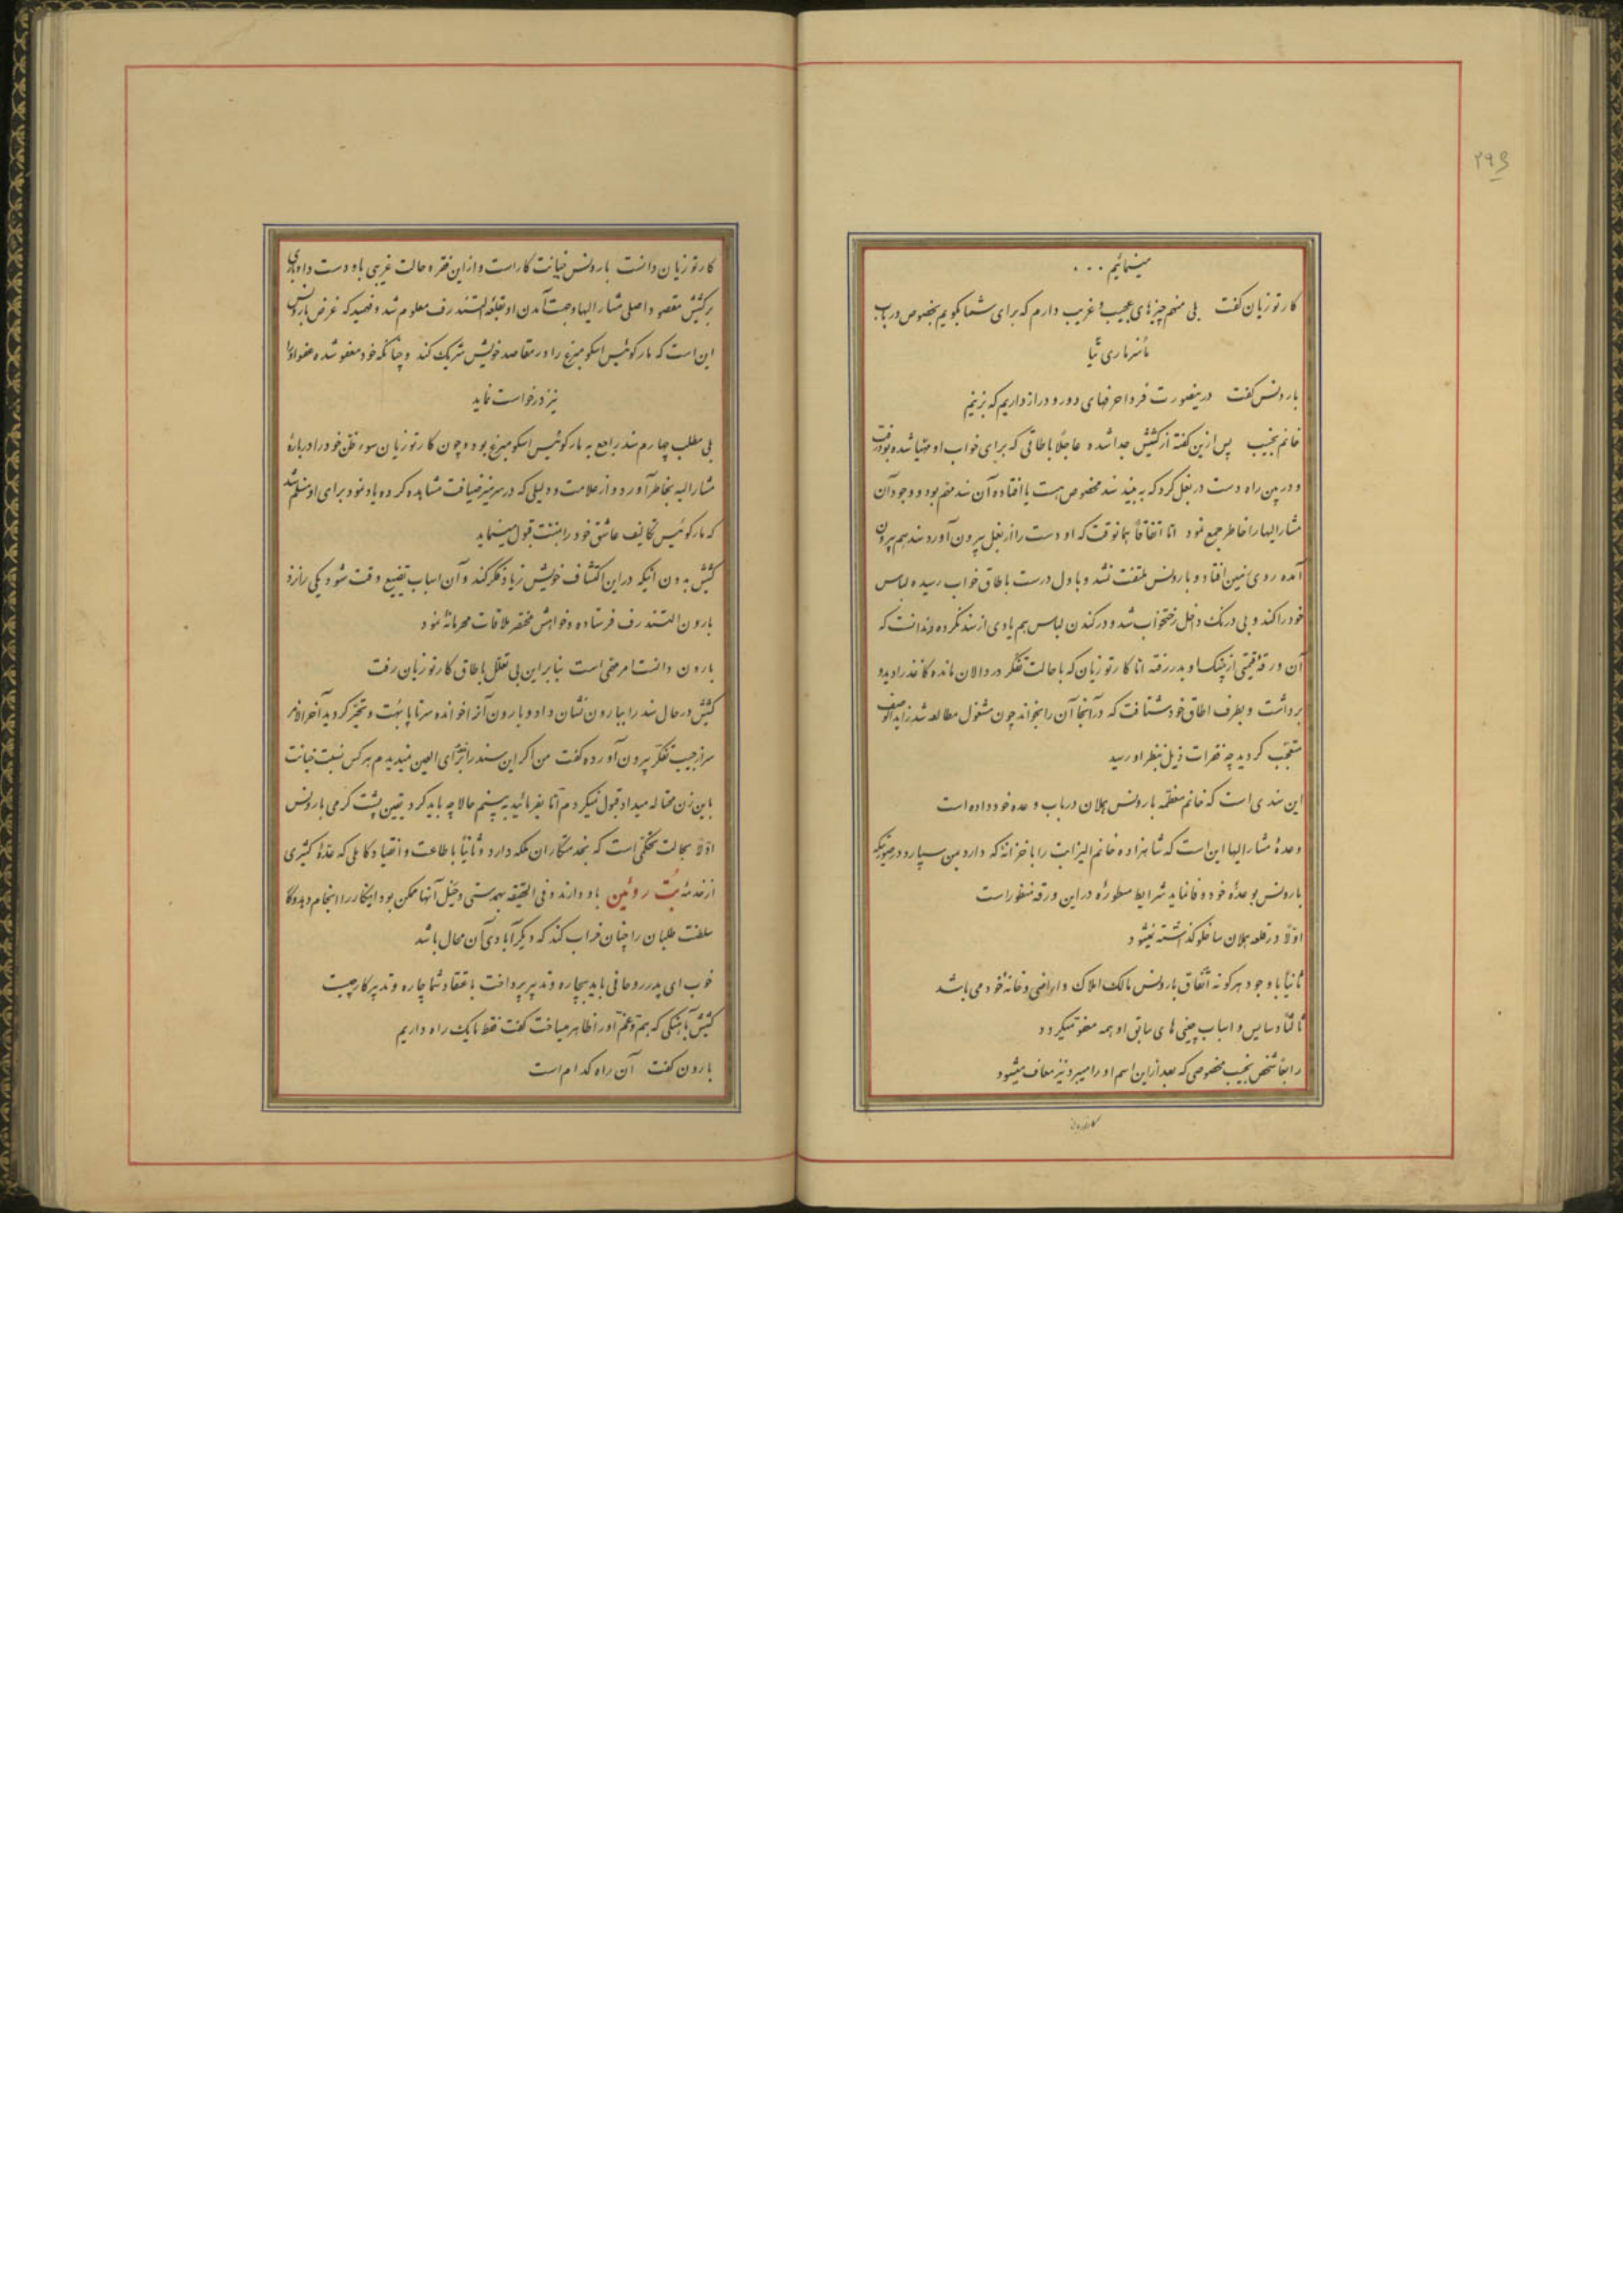 ۲۹۶
مینمائیم . . .
کارتوزیان گفت بلی منهم چیزهای عجیب و غریب دارم که برای شما بگویم بخصوص در باب
مادر ماری تیا
بارونس گفت درینصورت فردا حرفهای دور و دراز داریم که بزنیم
خانم نجیب پس ازین گفته از کشیش جدا شده عاجلاً باطاقی که برای خواب او مهیا شده بود رفت
و در بین راه دست در بغل کرد که به بیند سند مخصوص هست یا افتاده آن سند مهم بود و وجود آن
مشارالیها را خاطر جمع نمود اما اتفاقاً همانوقت که او دست را از بغل بیرون آورد سند هم بیرون
آمده روی زمین افتاد و بارونس ملتفت نشد و با دل درست باطاق خواب رسیده لباس
خود را کند و بی درنگ داخل رختخواب شد و در کندن لباس هم یادی از سند نکرده و ندانست که
آن ورقهٔ قیمتی از چنگ او بدر رفته اما کارتوزیان که با حالت تفکر در دالان مانده کاغذ را دید و
برداشت و بطرف اطاق خود شتافت که در آنجا آن را بخواند چون مشغول مطالعه شد زایدالوصف
متعجب گردید چه فقرات ذیل بنظر او رسید
این سندی است که خانم معظمه بارونس هملان در باب وعده خود داده است
وعدهٔ مشارالیها این است که شاهزاده خانم الیزابت را با خزانهٔ که دارد بمن سپارد در صورتیکه
بارونس بوعدهٔ خود وفا نماید شرایط مسطورهٔ در این ورقه منظور است
اولاً در قلعه هملان ساخلو گذاشته نمیشود
ثانیاً با وجود هرگونه اتفاق بارونس مالک املاک و اراضی و خانهٔ خود می باشد
ثالثاً دسایس و اسباب چینی های سابق او همه معفو میگردد
رابعاً شخص نجیب مخصوصی که بعد از این اسم او را میبرد نیز معاف میشود
کارتوزیان
کارتوزیان دانست بارونس خیانت کار است و از این فقره حالت غریبی باو دست داد باری
بر کشیش مقصود اصلی مشارالیها و جهت آمدن او بقلعه التندرف معلوم شد و فهمید که غرض بارونس
این است که مارکوئیس اسکومبرغ را در مقاصد خویش شریک کند و چنانکه خود معفو شده عفو او را
نیز درخواست نماید
بلی مطلب چهارم سند راجع به مارکوئیس اسکومبرغ بود و چون کارتوزیان سوءظن خود را در بارهٔ
مشارالیه بخاطر آورد و از علامت و دلیلی که در سر میز ضیافت مشاهده کرده یاد نمود برای او مسلم شد
که مارکوئیس تکالیف عاشق خود را بمنت قبول مینماید
کشیش بدون اینکه در این اکتشاف خویش زیاد فکر کند و آن اسباب تضییع وقت شود یکی را نزد
بارون التندرف فرستاده و خواهش مختصر ملاقات محرمانهٔ نمود
بارون دانست امر مهمی است بنابراین بی تعلل باطاق کارتوزیان رفت
کشیش در حال سند را ببارون نشان داد و بارون آنرا خوانده سر تا پا بهت و تحیر گردید آخرالامر
سر از جیب تفکر بیرون آورده گفت من اگر این سند را برأی العین نمیدیدم هر کس نسبت خیانت
باین زن محتاله میداد قبول نمیکردم اما بفرمائید به بینیم حالا چه باید کرد یقین پشت گرمی بارونس
اولاً بحالت تحکمی است که بخدمتکاران ملکه دارد و ثانیاً باطاعت و انقیاد کاملی که عدهٔ کثیری
از خدمهٔ بُت روئین باو دارند و فی الحقیقه بهمدستی و حیل آنها ممکن بود اینکار را انجام دهد و کار
سلطنت طلبان را چنان خراب کند که دیگر آبادی آن محال باشد
خوب ای پدر روحانی باید بچاره و تدبیر پرداخت باعتقاد شما چاره و تدبیر کار چیست
کشیش بآهنگی که هم و غم او را ظاهر میساخت گفت فقط ما یک راه داریم
بارون گفت آن راه کدام است